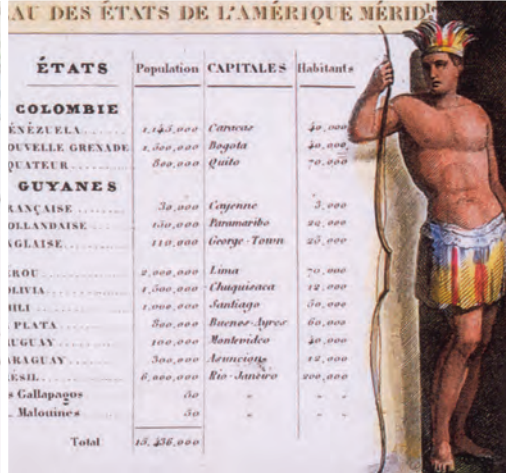 AU DES ÉTATS DE L'AMÉRIQUE MÉRID
ÉTATS Population CAPITALES Habitants
COLOMBIE
ÉNÉZUELA 1,145,000 Caracas 40,000
OUVELLE GRENADE 1,500,000 Bogota 40,000
QUATEUR 800,000 Quito 70,000
GUYANES
RANÇAISE 30,000 Cayenne 3,000
OLLANDAISE 150,000 Paramaribo 20,000
NGLAISE 110,000 George-Town 25,000
ROU 2,000,000 Lima 70,000
OLIVIA 1,500,000 Chuquisaca 12,000
HILI 1,000,000 Santiago 50,000
PLATA 800,000 Buenos-Ayres 60,000
RUGUAY 100,000 Montevideo 40,000
ARAGUAY 300,000 Asuncions 12,000
ÉSIL 6,000,000 Rio-Janeiro 200,000
s Gallapagos 50 " "
Malouines 50 " "
Total 15,436,000